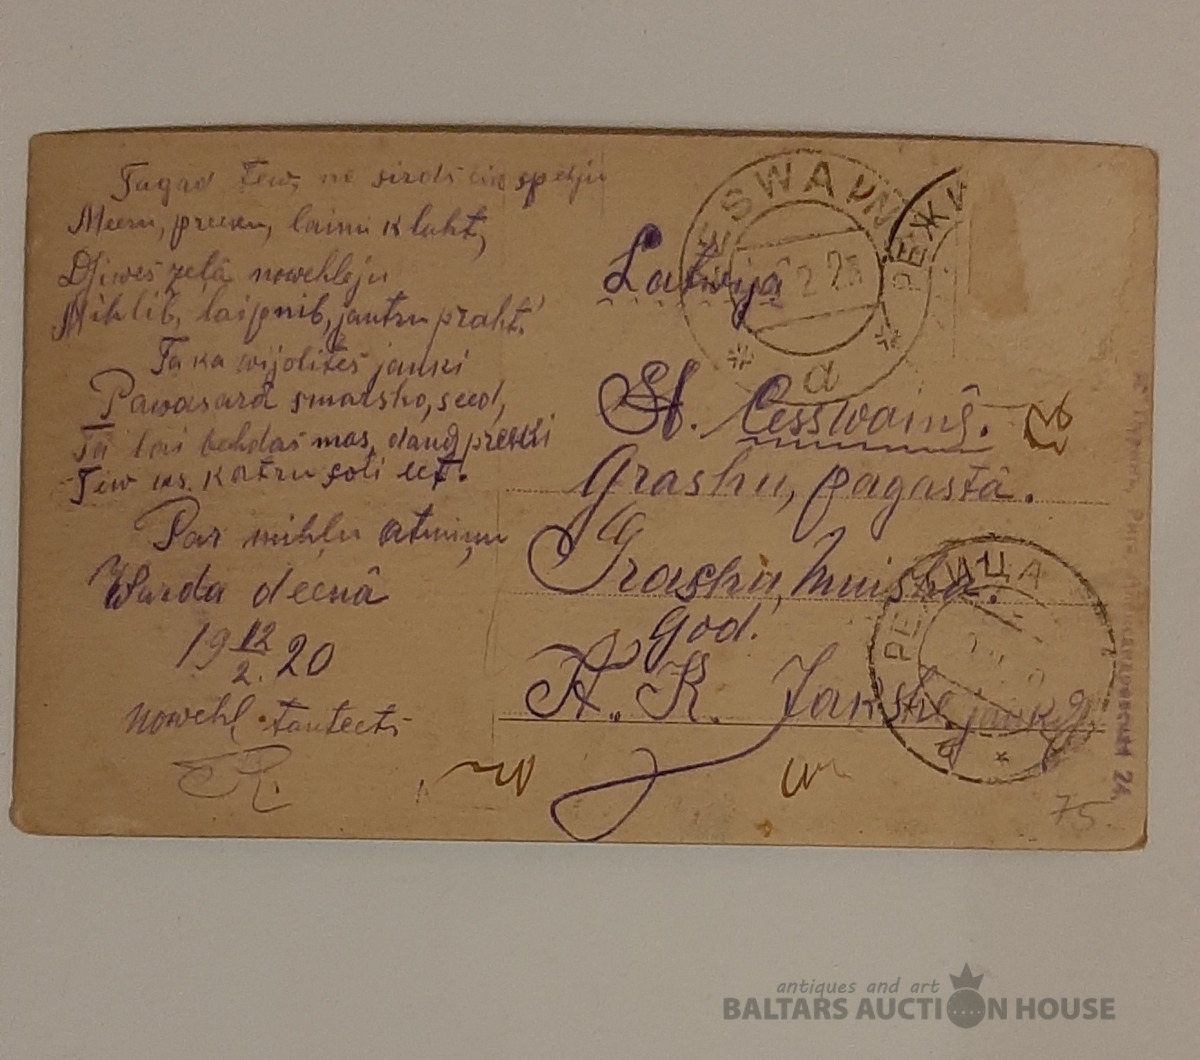 Tagad Tew, no sirds spehju
Meeru, preeku, laimi kluht,
Dsiwes zeļâ nowehleju
Mihlib, laipnib, jautru praht!
Ta ka wijolites jauki
Pawasarâ smarsho, seed,
Tā lai behdas mas, daudz preeki
Tew us katru soli eet.
Par mihļu atmiņu
Warda deenâ
19 12/2. 20
nowehl
R.
Latwija
St. Cesswainê.
Grashu, pagastâ.
Grashu, muisha.
god.
K. Jansh
ESWAIN
a
РЕЖИ
РЕЖИЦА
24
75
antiques and art
BALTARS AUCTION HOUSE